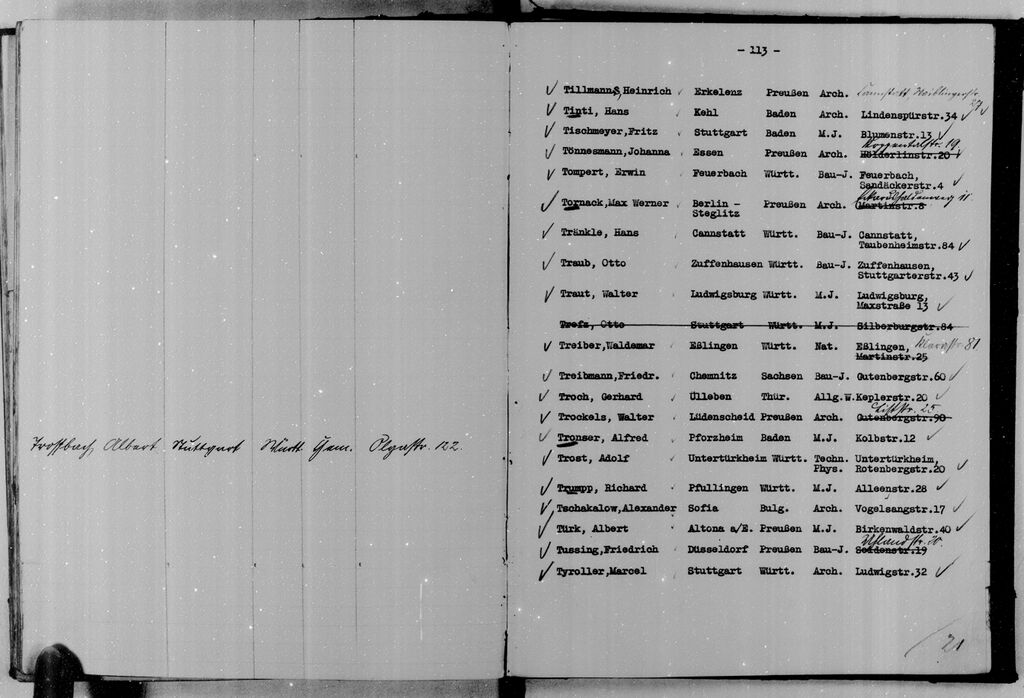 Trossbach, Albert Stuttgart Württ. Chem. Olgastr. 122.
- 113 -
✓ Tillmanns, Heinrich ✓ Erkelenz Preußen Arch. Cannstatt, Waiblingerstr.
27 ✓
✓ Tinti, Hans ✓ Kehl Baden Arch. Lindenspürstr.34 ✓
✓ Tischmeyer,Fritz ✓ Stuttgart Baden M.J. Blumenstr.13 ✓
✓ Tönnesmann,Johanna ✓ Essen Preußen Arch. Hölderlinstr.20 ✓
✓ Tompert, Erwin Feuerbach Württ. Bau-J. Feuerbach,
Sandäckerstr.4 ✓
✓ Tornack,Max Werner ✓ Berlin - Preußen Arch. Martinstr.8
Steglitz
✓ Tränkle, Hans ✓ Cannstatt Württ. Bau-J. Cannstatt,
Taubenheimstr.84 ✓
✓ Traub, Otto ✓ Zuffenhausen Württ. Bau-J. Zuffenhausen,
Stuttgarterstr.43 ✓
✓ Traut, Walter ✓ Ludwigsburg Württ. M.J. Ludwigsburg,
Maxstraße 13 ✓
Trefz, Otto Stuttgart Württ. M.J. Silberburgstr.84
✓ Treiber,Waldemar ✓ Eßlingen Württ. Nat. Eßlingen,
Martinstr.25
✓ Treibmann,Friedr. ✓ Chemnitz Sachsen Bau-J. Gutenbergstr.60 ✓
✓ Troch, Gerhard ✓ Ülleben Thür. Allg.W.Keplerstr.20 ✓
Listr. 25
✓ Trockels, Walter ✓ Lüdenscheid Preußen Arch. Gutenbergstr.90
✓ Tronser, Alfred ✓ Pforzheim Baden M.J. Kolbstr.12 ✓
✓ Trost, Adolf ✓ Untertürkheim Württ. Techn. Untertürkheim,
Phys. Rotenbergstr.20 ✓
✓ Trumpp, Richard ✓ Pfullingen Württ. M.J. Alleenstr.28 ✓
✓ Tschakalow,Alexander Sofia Bulg. Arch. Vogelsangstr.17 ✓
✓ Türk, Albert ✓ Altona a/E. Preußen M.J. Birkenwaldstr.40 ✓
Uhlandstr. 20.
✓ Tussing,Friedrich ✓ Düsseldorf Preußen Bau-J. Seidenstr.19
✓ Tyroller,Marcel ✓ Stuttgart Württ. Arch. Ludwigstr.32 ✓
21